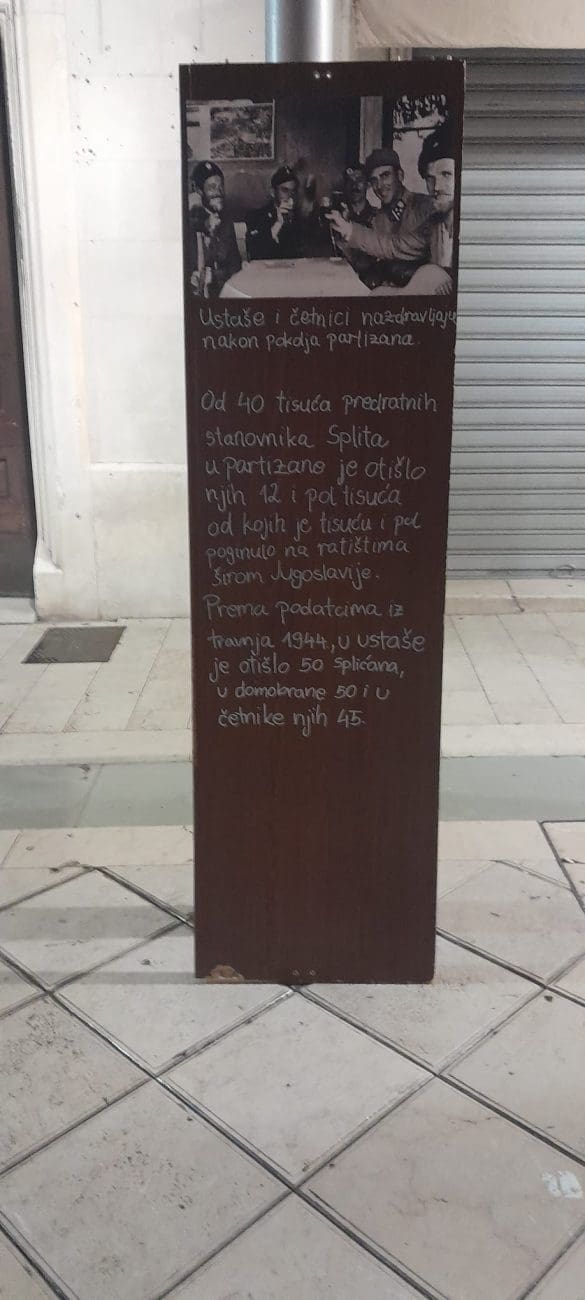 Ustaše i četnici nazdravljaju
nakon pokolja partizana.
Od 40 tisuća predratnih
stanovnika Splita
u partizane je otišlo
njih 12 i pol tisuća
od kojih je tisuću i pol
poginulo na ratištima
širom Jugoslavije.
Prema podatcima iz
travnja 1944, u ustaše
je otišlo 50 splićana,
u domobrane 50 i u
četnike njih 45.